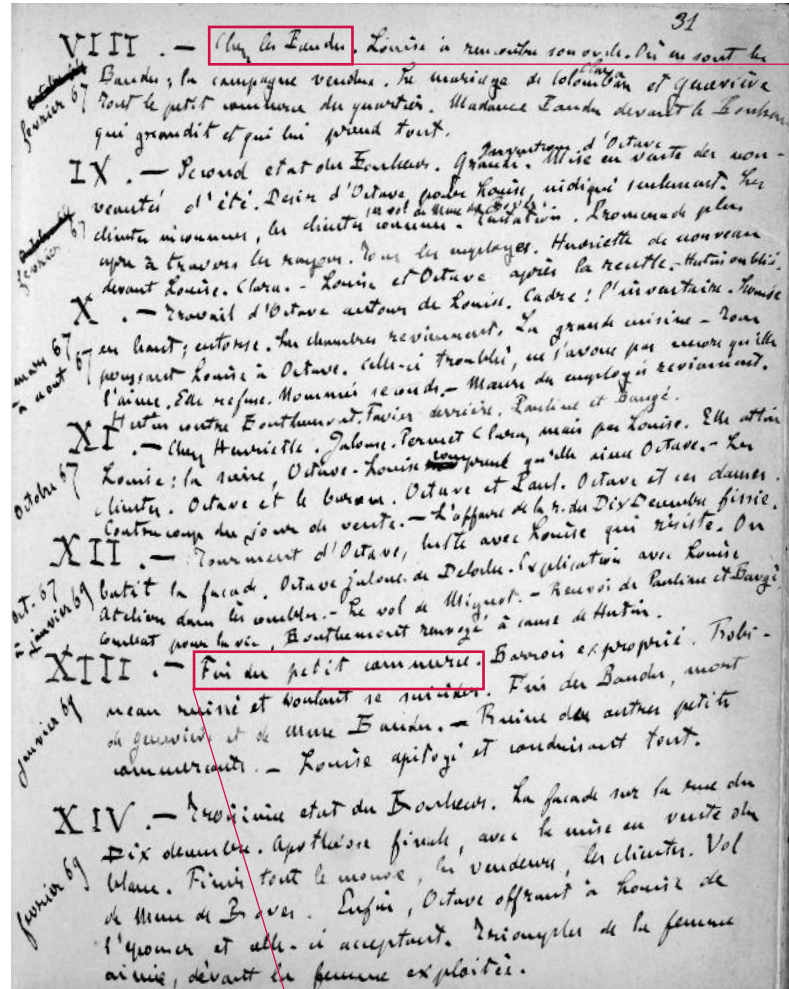 31
VIII. — Chez les Baudu. Louise a rencontré son oncle. Où en sont les
février 67
Baudu; la campagne vendue. Le mariage de Colomban et Geneviève
Clara
Tout le petit commerce du quartier. Madame Baudu devant le Bonheur
qui grandit et qui lui prend tout.
IX. — Second état du Bonheur. Grandi. Mise en vente des nou-
Inventions d'Octave
veautés d'été. Désir d'Octave pour Louise, indiqué seulement. Les
février 67
clientes inconnues, les clientes connues. Tentation. Promenade plus
un vol de Mme de Boves
à travers les rayons. Tous les employés. Henriette de nouveau
devant Louise. Clara. - Louise et Octave après la vente. - Hutin oublié.
X. — Travail d'Octave autour de Louise. Cadre: l'inventaire. Louise
mars 67 à août 67
en haut; entorse. Les chambres reviennent. La grande cuisine - Tous
poussant Louise à Octave. Celle-ci troublée, ne s'avoue pas encore qu'elle
l'aime. Elle refuse. Nommée seconde. - Mœurs des employés reviennent.
Hutin contre Bouthemont. Favier derrière. Pauline et Baugé.
XI. — Chez Henriette. Jalouse. Permet Clara, mais pas Louise. Elle attire
octobre 67
Louise: la scène, Octave. - Louise comprend qu'elle aime Octave. - Les
clientes. Octave et le baron. Octave et Paul. Octave et ces dames.
Contrecoup du jour de vente. — L'affaire de la r. du Dix Décembre finie.
XII. — Tourment d'Octave, lutte avec Louise qui résiste. On
oct. 67 à janvier 69
bâtit la façade. Octave jaloux de Deloche. Explication avec Louise
Ateliers dans les combles. - Le vol de Mignot. - Renvoi de Pauline et Baugé,
combat pour la vie, Bouthemont renvoyé à cause de Hutin.
XIII. — Fin du petit commerce. Bourras exproprié. Robi-
janvier 69
neau ruiné et voulant se suicider. Fin des Baudu, mort
de Geneviève et de Mme Baudu. — Ruine des autres petits
commerçants. — Louise apitoyée et conduisant tout.
XIV. — Troisième état du Bonheur. La façade sur la rue du
février 69
Dix décembre. Apothéose finale, avec la mise en vente du
blanc. Finir tout le monde, les vendeurs, les clientes. Vol
de Mme de Boves. Enfin, Octave offrant à Louise de
l'épouser et celle-ci acceptant. Triomphe de la femme
aimée, devant la femme exploitée.